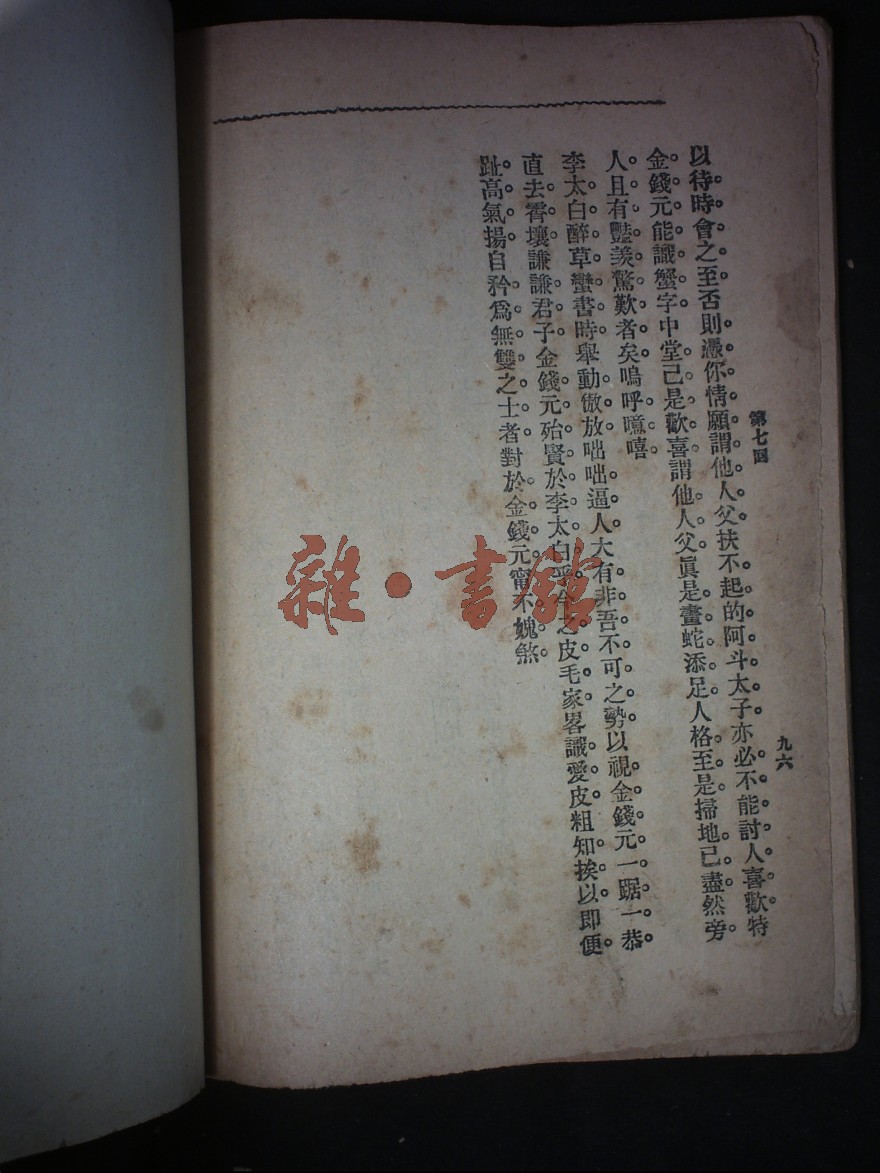 第七回
九六
以待時會之至否則憑你情願謂他人父扶不起的阿斗太子亦必不能討人喜歡特
金錢元能識蟹字中堂已是歡喜謂他人父眞是畫蛇添足人格至是掃地已盡然旁
人且有豔羨驚歎者矣嗚呼噫嘻
李太白醉草蠻書時舉動傲放咄咄逼人大有非吾不可之勢以視金錢元一踞一恭
直去霄壤謙謙君子金錢元殆賢於李太白乎今之皮毛家畧識愛皮粗知挨以即便
趾高氣揚自矜爲無雙之士者對於金錢元甯不媿煞
雜·書館